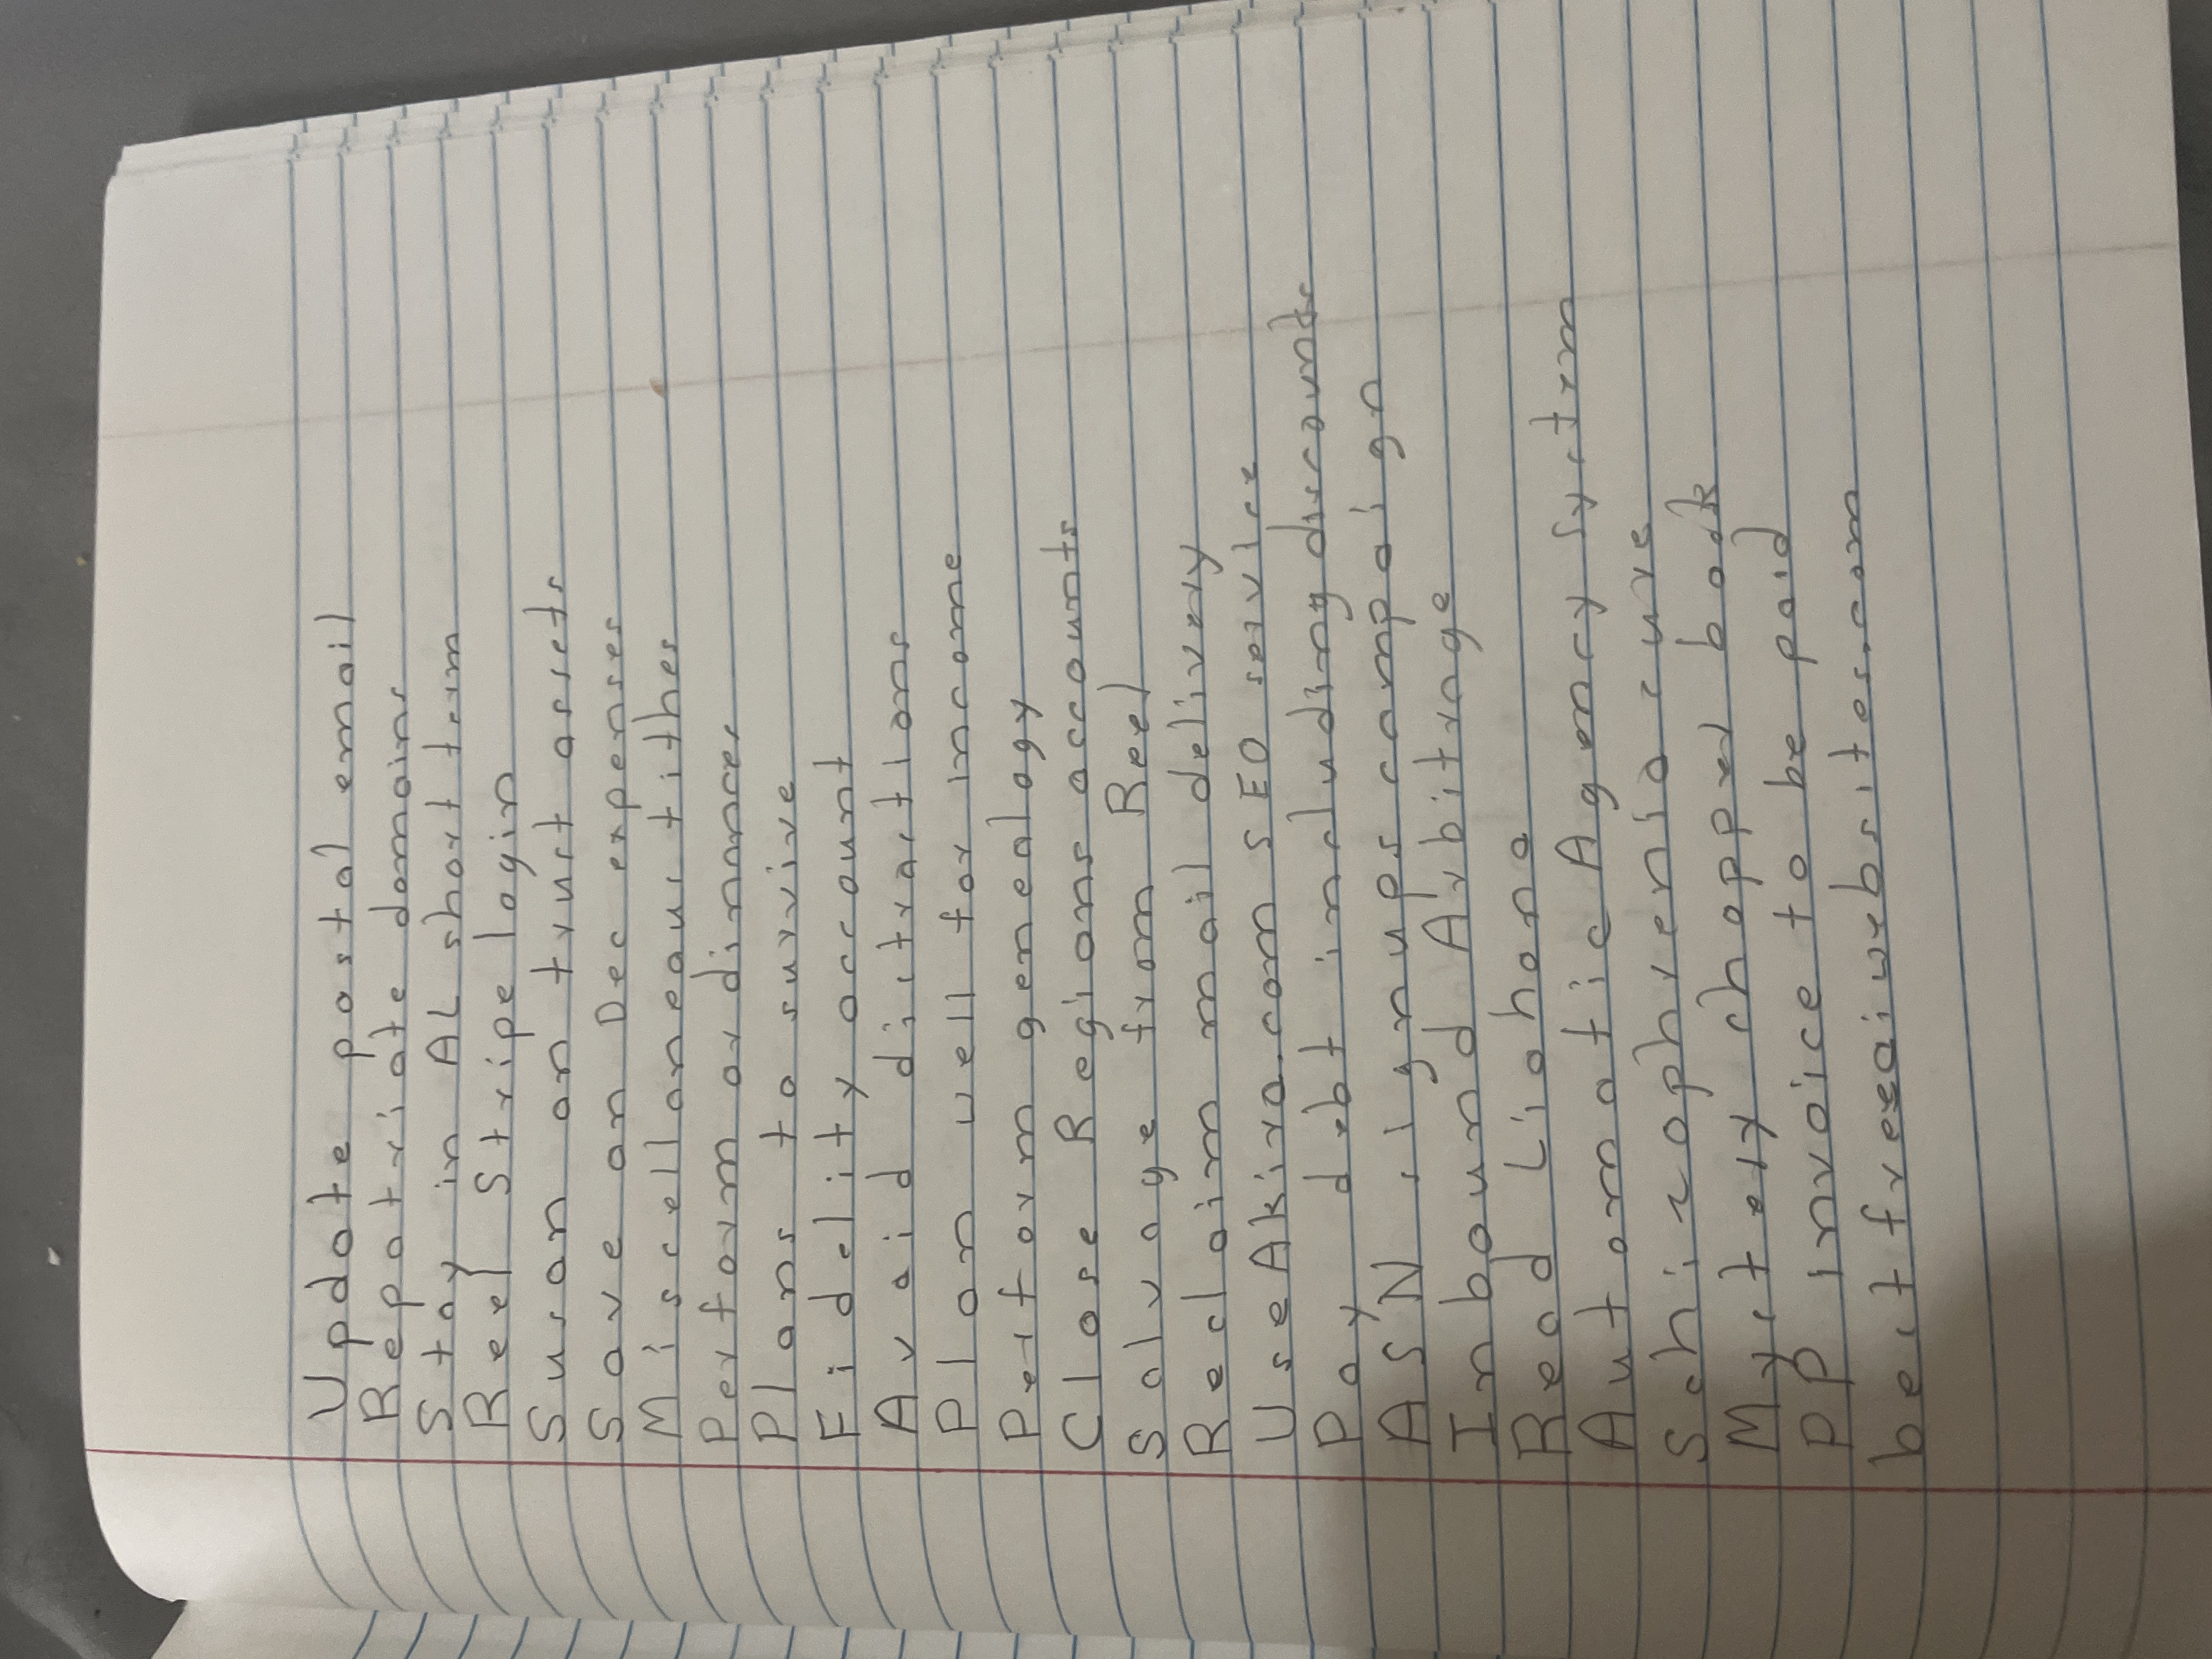 Update postal email
Repatriate domains
Stay in AL short term
Rexel Stripe login
Susan on trust assets
Save on Dec expenses
Miscellaneous tithes
Perform ordinances
Plans to survive
Fidelity account
Avoid distractions
Plan well for income
Perform genealogy
Close Regions accounts
Salvage from Rexel
Reclaim mail delivery
UseAkira.com SEO service
Pay debt including discounts
ASN signups campaign
Inbound Arbitrage
Read Liahona
Automatic Agency System
Schizophrenia cure
Mystery chapped book
PP invoice to be paid
bestfreeaiwebsites.com